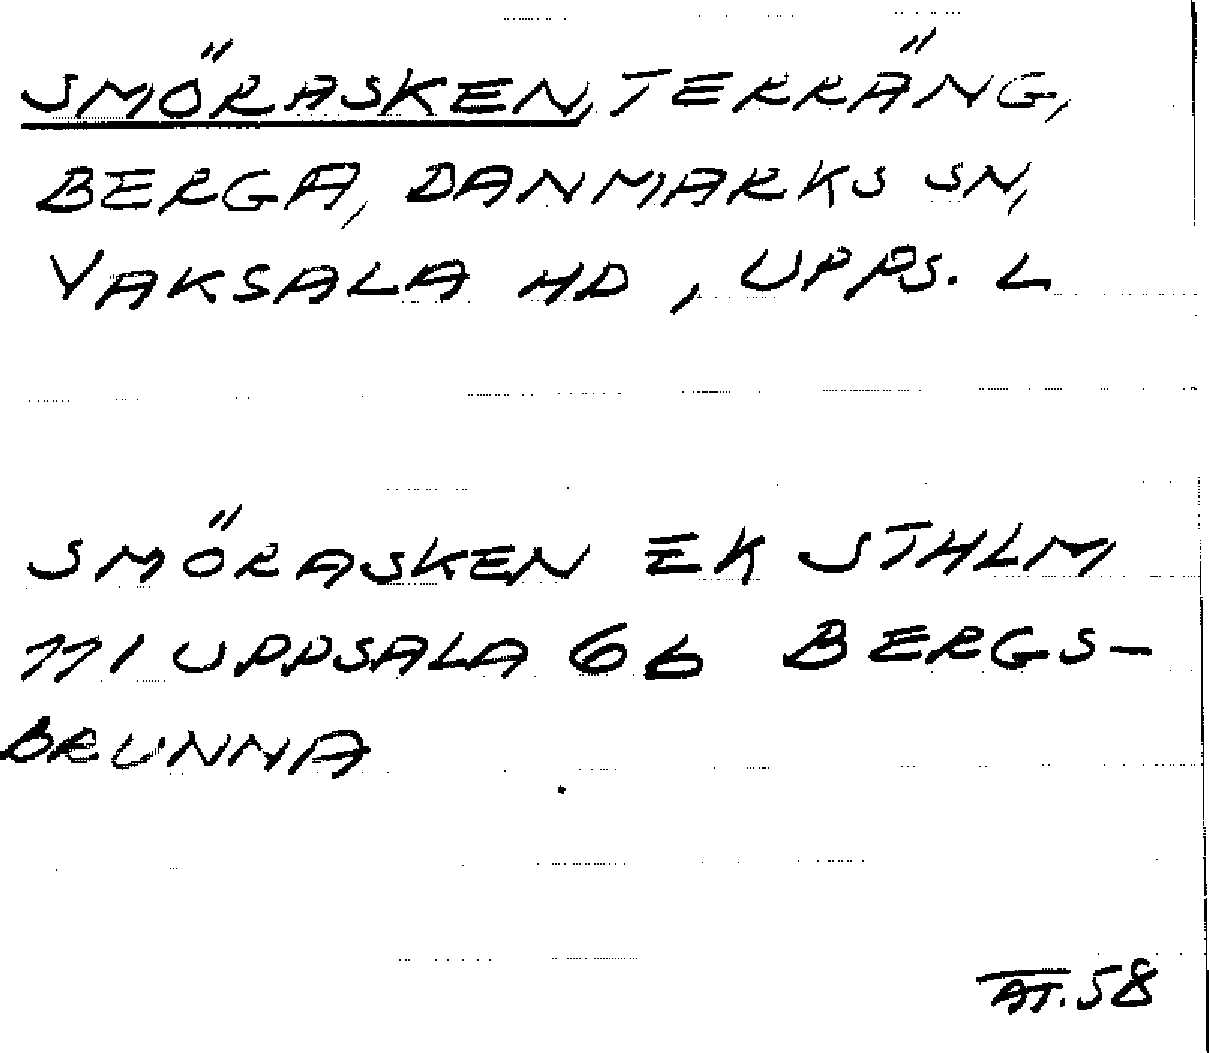 SMÖRASKEN, TERRÄNG,
BERGA, DANMARKS SN,
VAKSALA HD, UPPS. L
SMÖRASKEN EK STHLM
111 UPPSALA 6b BERGS-
BRUNNA
AT. 58